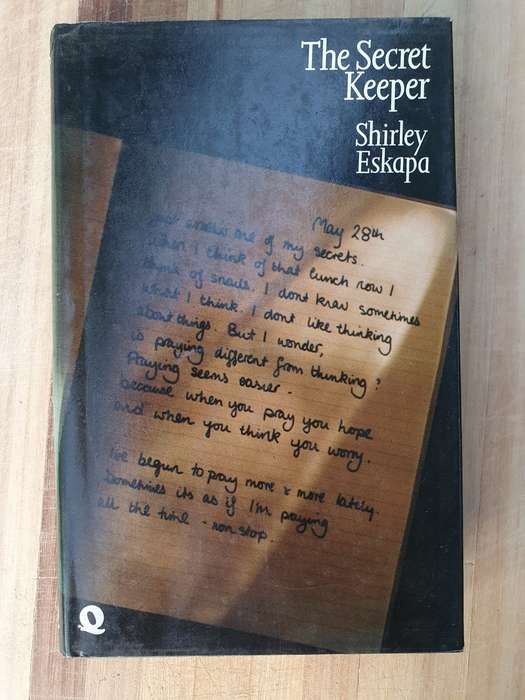 The Secret
Keeper
Shirley
Eskapa
May 28th
me of my secrets.
when I think of that lunch now I
think of snails. I dont know sometimes
what I think. I dont like thinking
about things. But I wonder,
is praying different from thinking?
Praying seems easier.
because when you pray you hope
and when you think you worry.
I've begun to pray more & more lately.
Sometimes its as if I'm praying
all the time - non stop.
Q